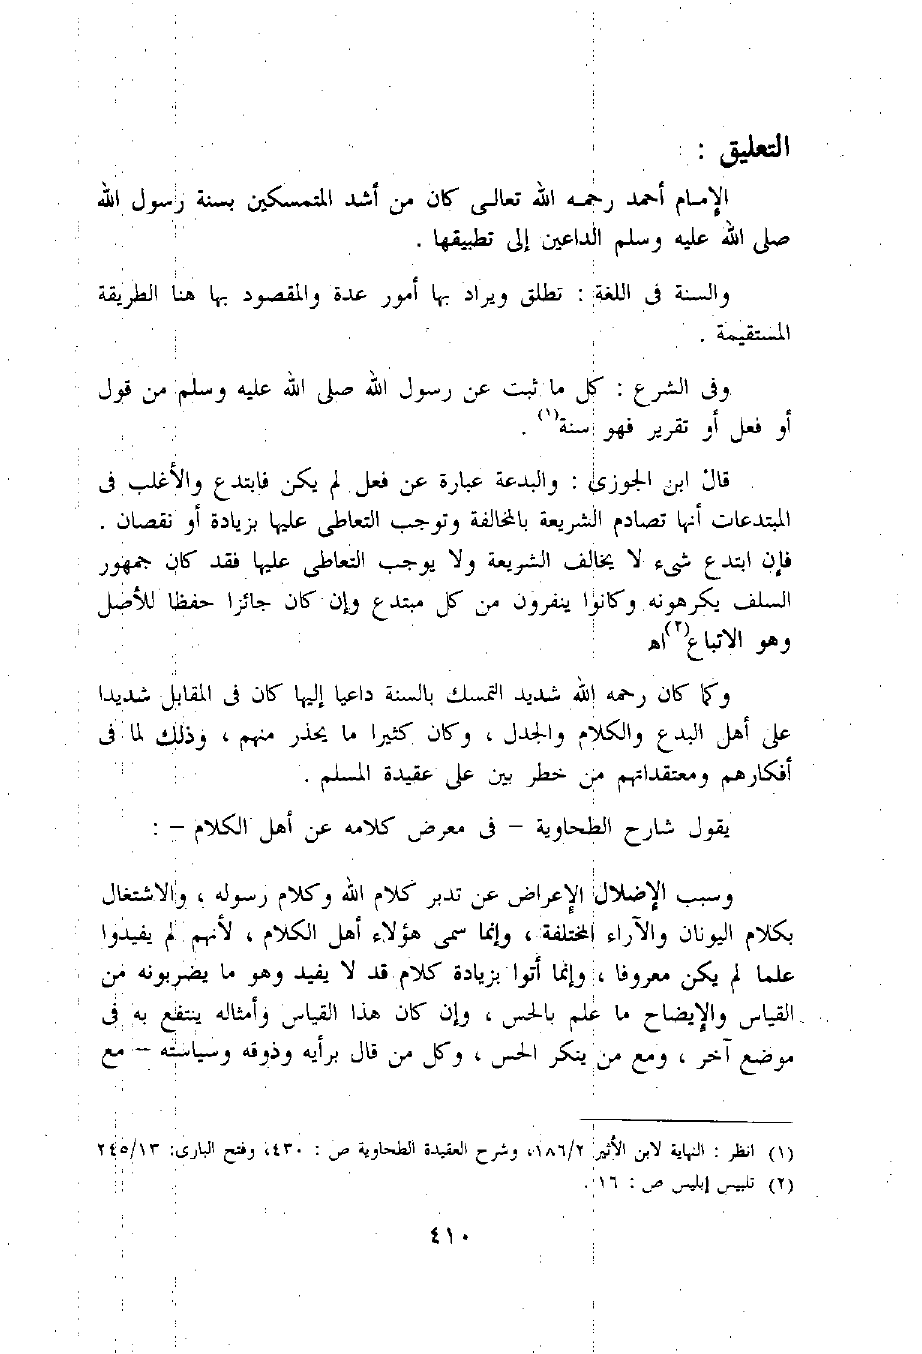 التعليق :
الإمام أحمد رحمه الله تعالى كان من أشد المتمسكين بسنة رسول الله
صلى الله عليه وسلم الداعين إلى تطبيقها .
والسنة فى اللغة : تطلق ويراد بها أمور عدة والمقصود بها هنا الطريقة
المستقيمة .
وفى الشرع : كل ما ثبت عن رسول الله صلى الله عليه وسلم من قول
أو فعل أو تقرير فهو سنة(١) .
قال ابن الجوزى : والبدعة عبارة عن فعل لم يكن فابتدع والأغلب فى
المبتدعات أنها تصادم الشريعة بالمخالفة وتوجب التعاطى عليها بزيادة أو نقصان .
فإن ابتدع شىء لا يخالف الشريعة ولا يوجب التعاطى عليها فقد كان جمهور
السلف يكرهونه وكانوا ينفرون من كل مبتدع وإن كان جائزا حفظا للأصل
وهو الاتباع(٢)اهـ
وكما كان رحمه الله شديد التمسك بالسنة داعيا إليها كان فى المقابل شديدا
على أهل البدع والكلام والجدل ، وكان كثيرا ما يحذر منهم ، وذلك لما فى
أفكارهم ومعتقداتهم من خطر بين على عقيدة المسلم .
يقول شارح الطحاوية – فى معرض كلامه عن أهل الكلام – :
وسبب الإضلال الإعراض عن تدبر كلام الله وكلام رسوله ، والاشتغال
بكلام اليونان والآراء المختلفة ، وإنما سمى هؤلاء أهل الكلام ، لأنهم لم يفيدوا
علما لم يكن معروفا ، وإنما أتوا بزيادة كلام قد لا يفيد وهو ما يضربونه من
القياس والإيضاح ما علم بالحس ، وإن كان هذا القياس وأمثاله ينتفع به فى
موضع آخر ، ومع من ينكر الحس ، وكل من قال برأيه وذوقه وسياسته – مع
(١) انظر : النهاية لابن الأثير ١٨٦/٢، وشرح العقيدة الطحاوية ص : ٤٣٠، وفتح البارى: ٢٤٥/١٣
(٢) تلبيس إبليس ص : ١٦ .
٤١٠